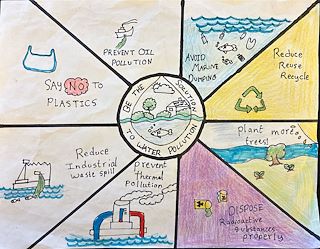 PREVENT OIL
POLLUTION
AVOID
MARINE
DUMPING
Reduce
Reuse
Recycle
SAY NO TO
PLASTICS
BE THE SOLUTION
TO WATER POLLUTION
Plant more
trees!
Reduce
Industrial
waste spill
Prevent
Thermal
Pollution
DISPOSE
Radioactive
substances
properly